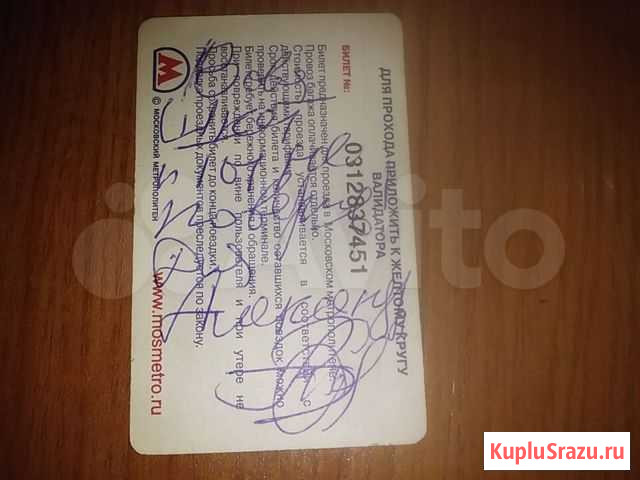 ДЛЯ ПРОХОДА ПРИЛОЖИТЬ К ЖЕЛТОМУ КРУГУ
ВАЛИДАТОРА
БИЛЕТ №: 0312837451
Билет предназначен для проезда в Московском метрополитене.
Провоз багажа оплачивается отдельно.
Стоимость проезда устанавливается в соответствии с
действующими тарифами.
Срок действия билета и количество оставшихся поездок можно
проверить на информационном терминале.
Билет требует бережного хранения и обращения.
При повреждении по вине пользователя и при утере не
восстанавливается.
Просьба сохранять билет до конца поездки.
Подделка проездных документов преследуется по закону.
М
© МОСКОВСКИЙ МЕТРОПОЛИТЕН
www.mosmetro.ru
Avito
KupluSrazu.ru